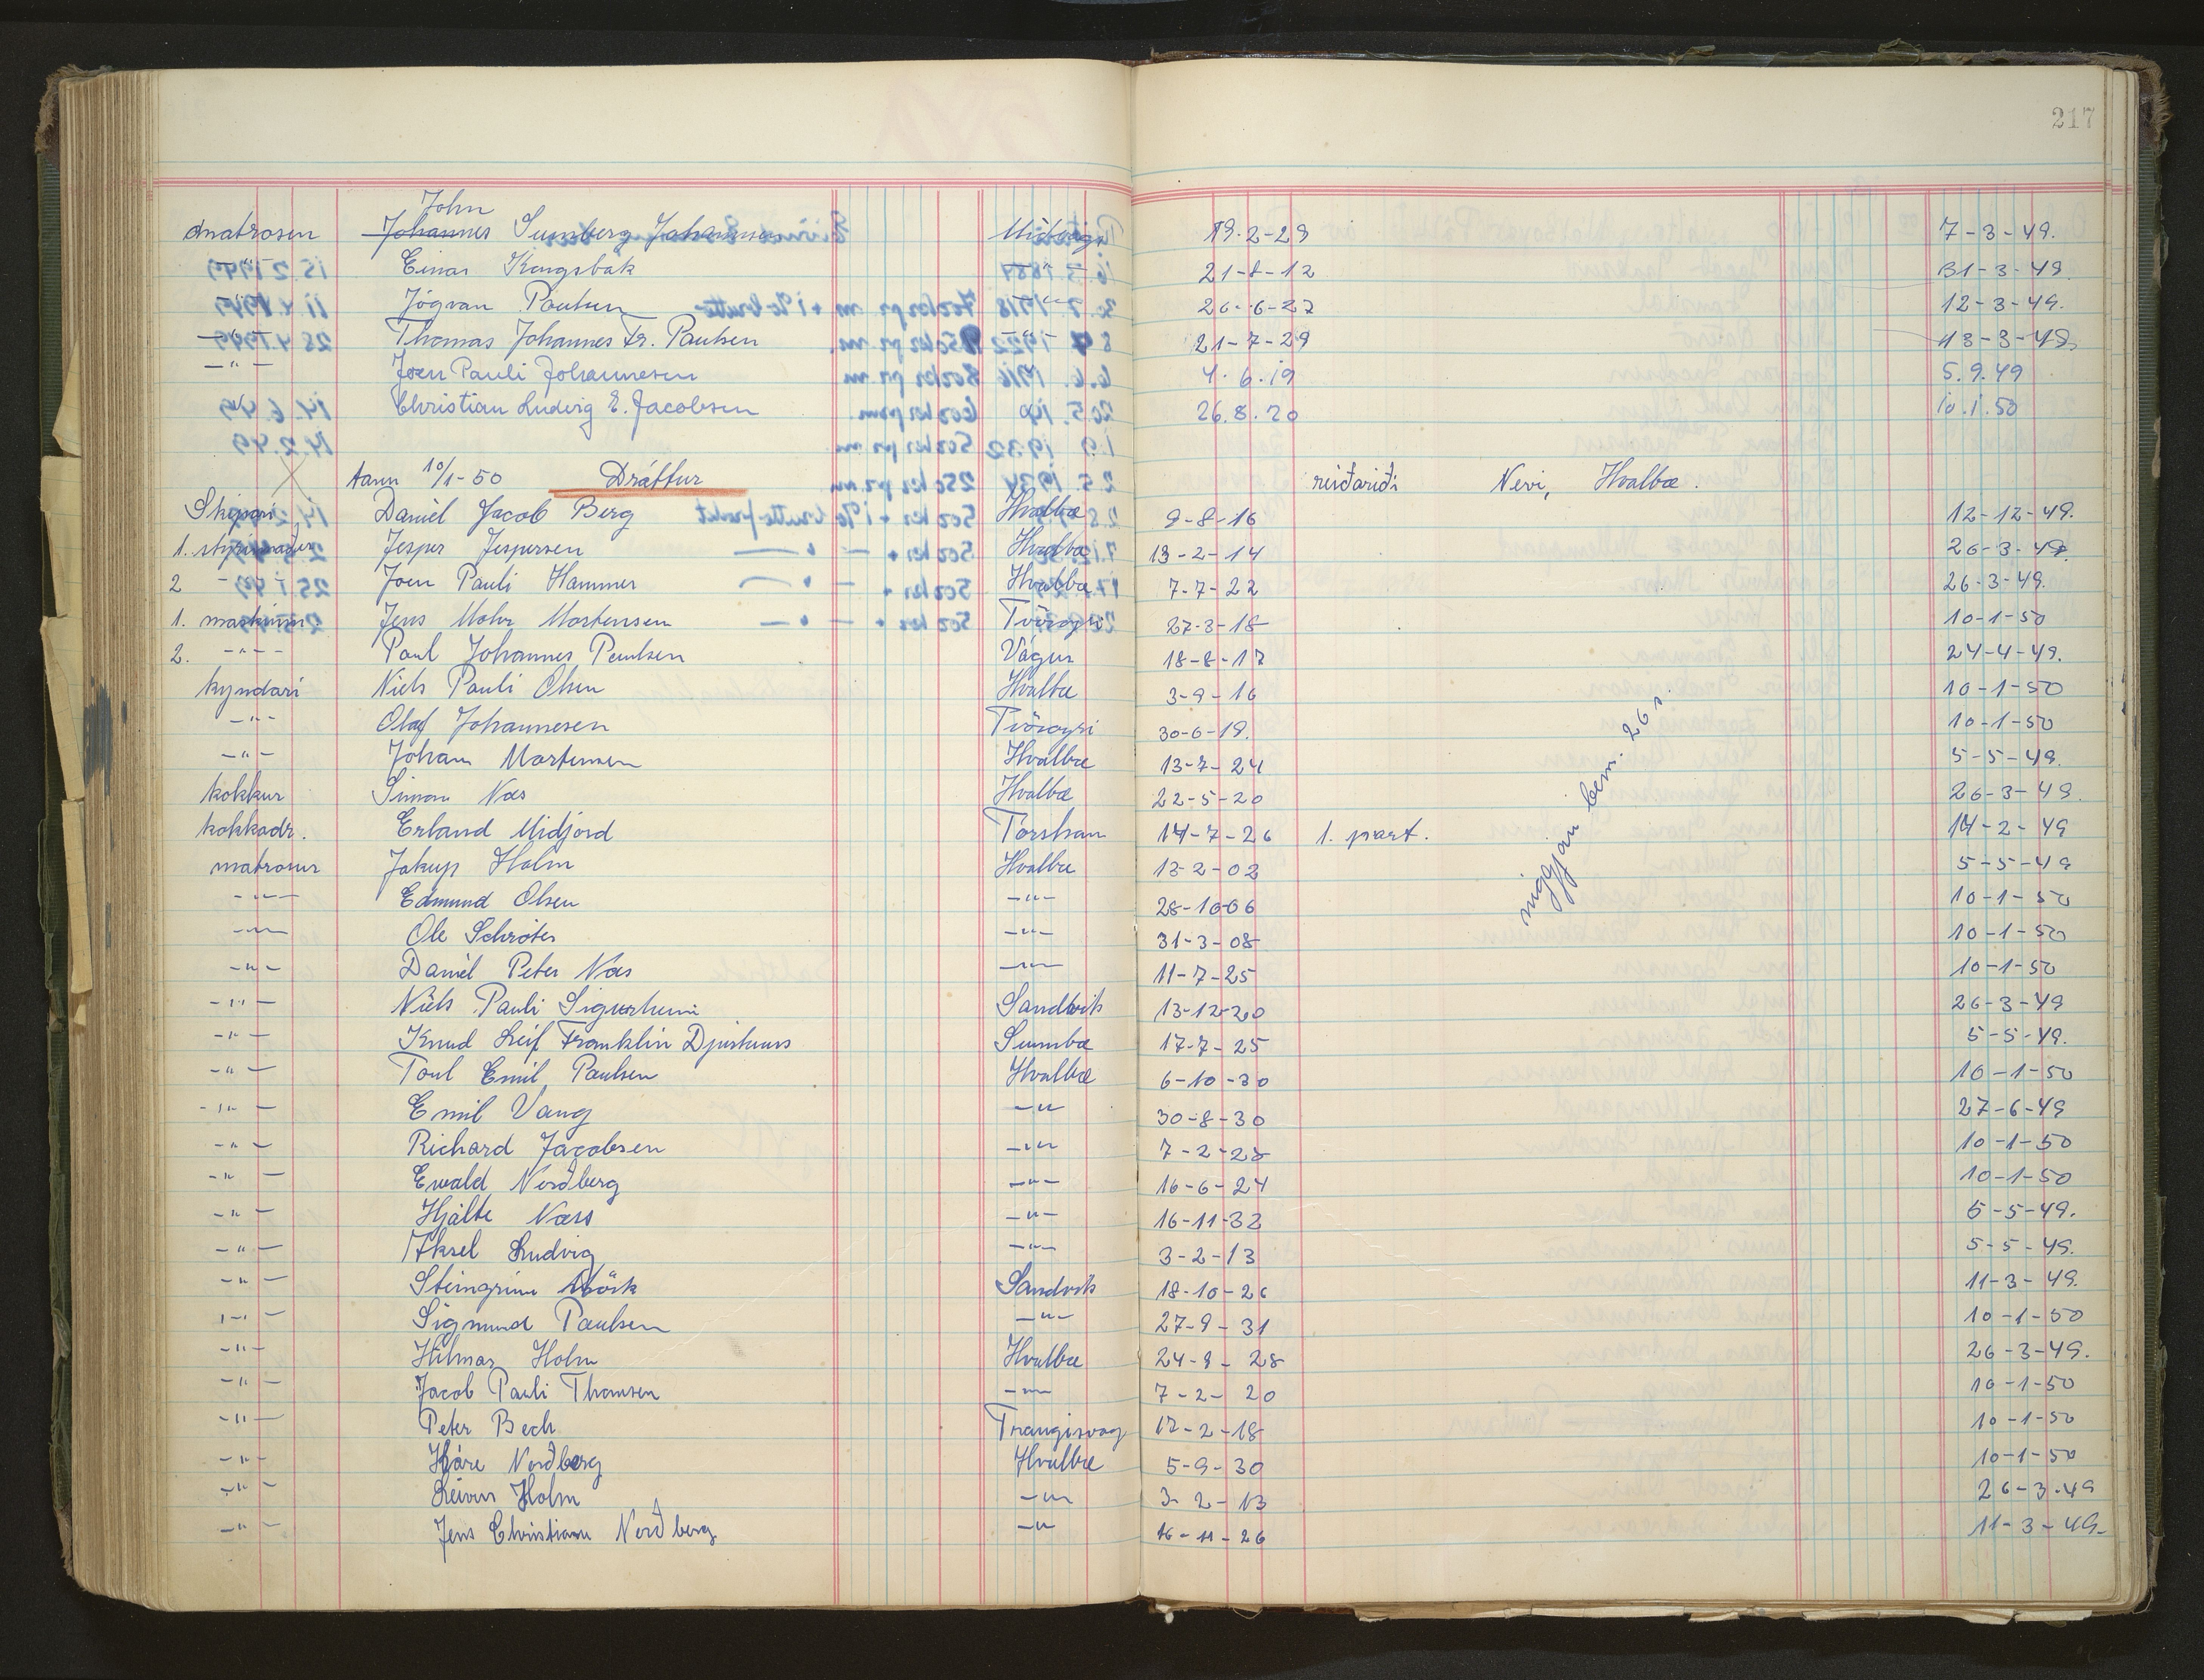 217
John
matrosur Johannes Sumberg Johannesen Miðvági 19-2-29 7-3-49.
Einar Kongsbak 21-8-12 31-3-49.
Jógvan Poulsen 26-6-27 12-3-49.
Thomas Johannes Fr. Paulsen 21-7-29 13-3-49
-"- Joen Pauli Johannesen 4.6.19 5.9.49
Christian Ludvig E. Jacobsen 26.8.20 10.1.50
tann 10/1-50 Dráttur reiðaríði Nevi, Hvalba.
Skipari Daniel Jacob Berg Hvalba 9-8-16 12-12-49.
1. stýrimaður Jesper Jespersen Hvalba 13-2-14 26-3-49.
2 - Joen Pauli Hammer Hvalba 7-7-22 26-3-49.
1. maskinm Jens Mohr Mortensen Tvöroyri 27-3-18 10-1-50
2. -"- Poul Johannes Poulsen Vágur 18-8-17 24-4-49.
kyndari Niels Pauli Olsen Hvalba 3-9-16 10-1-50
-"- Olaf Johannesen Tvöroyri 30-6-19. 10-1-50
-"- Johan Mortensen Hvalba 13-7-24 5-5-49.
kokkur Simon Næs Hvalba 22-5-20 26-3-49.
kokkadr. Erland Midjord Torshavn 14-7-26 1. part. 14-2-49
matrosur Jakup Holm Hvalba 13-2-02 5-5-49
-"- Edmund Olsen -"- 28-10-06 10-1-50
-"- Ole Schröter -"- 31-3-08 10-1-50
-"- Daniel Peter Næs -"- 11-7-25 10-1-50
-"- Niels Pauli Sigurheim Sandvik 13-12-20 26-3-49
-"- Knud Leif Franklin Djurhuus Sumba 17-7-25 5-5-49.
-"- Poul Emil Paulsen Hvalba 6-10-30 10-1-50
-"- Emil Vang -"- 30-8-30 27-6-49
-"- Richard Jacobsen -"- 7-2-28 10-1-50
-"- Ewald Norðberg -"- 16-6-24 10-1-50
-"- Hjalte Næss -"- 16-11-32 5-5-49.
-"- Aksel Ludvig -"- 3-2-13 5-5-49.
-"- Steingrim Mörk Sandvik 18-10-26 11-3-49.
-"- Sigmund Poulsen -"- 27-9-31 10-1-50
-"- Hilmar Holm Hvalba 24-9-28 26-3-49.
-"- Jacob Pauli Thomsen -"- 7-2-20 10-1-50
-"- Peter Bech Trangisvag 17-2-18 10-1-50
-"- Kåre Norðberg Hvalba 5-9-30 10-1-50
-"- Leivur Holm -"- 3-2-13 26-3-49
-"- Jens Christian Norðberg -"- 16-11-26 11-3-49